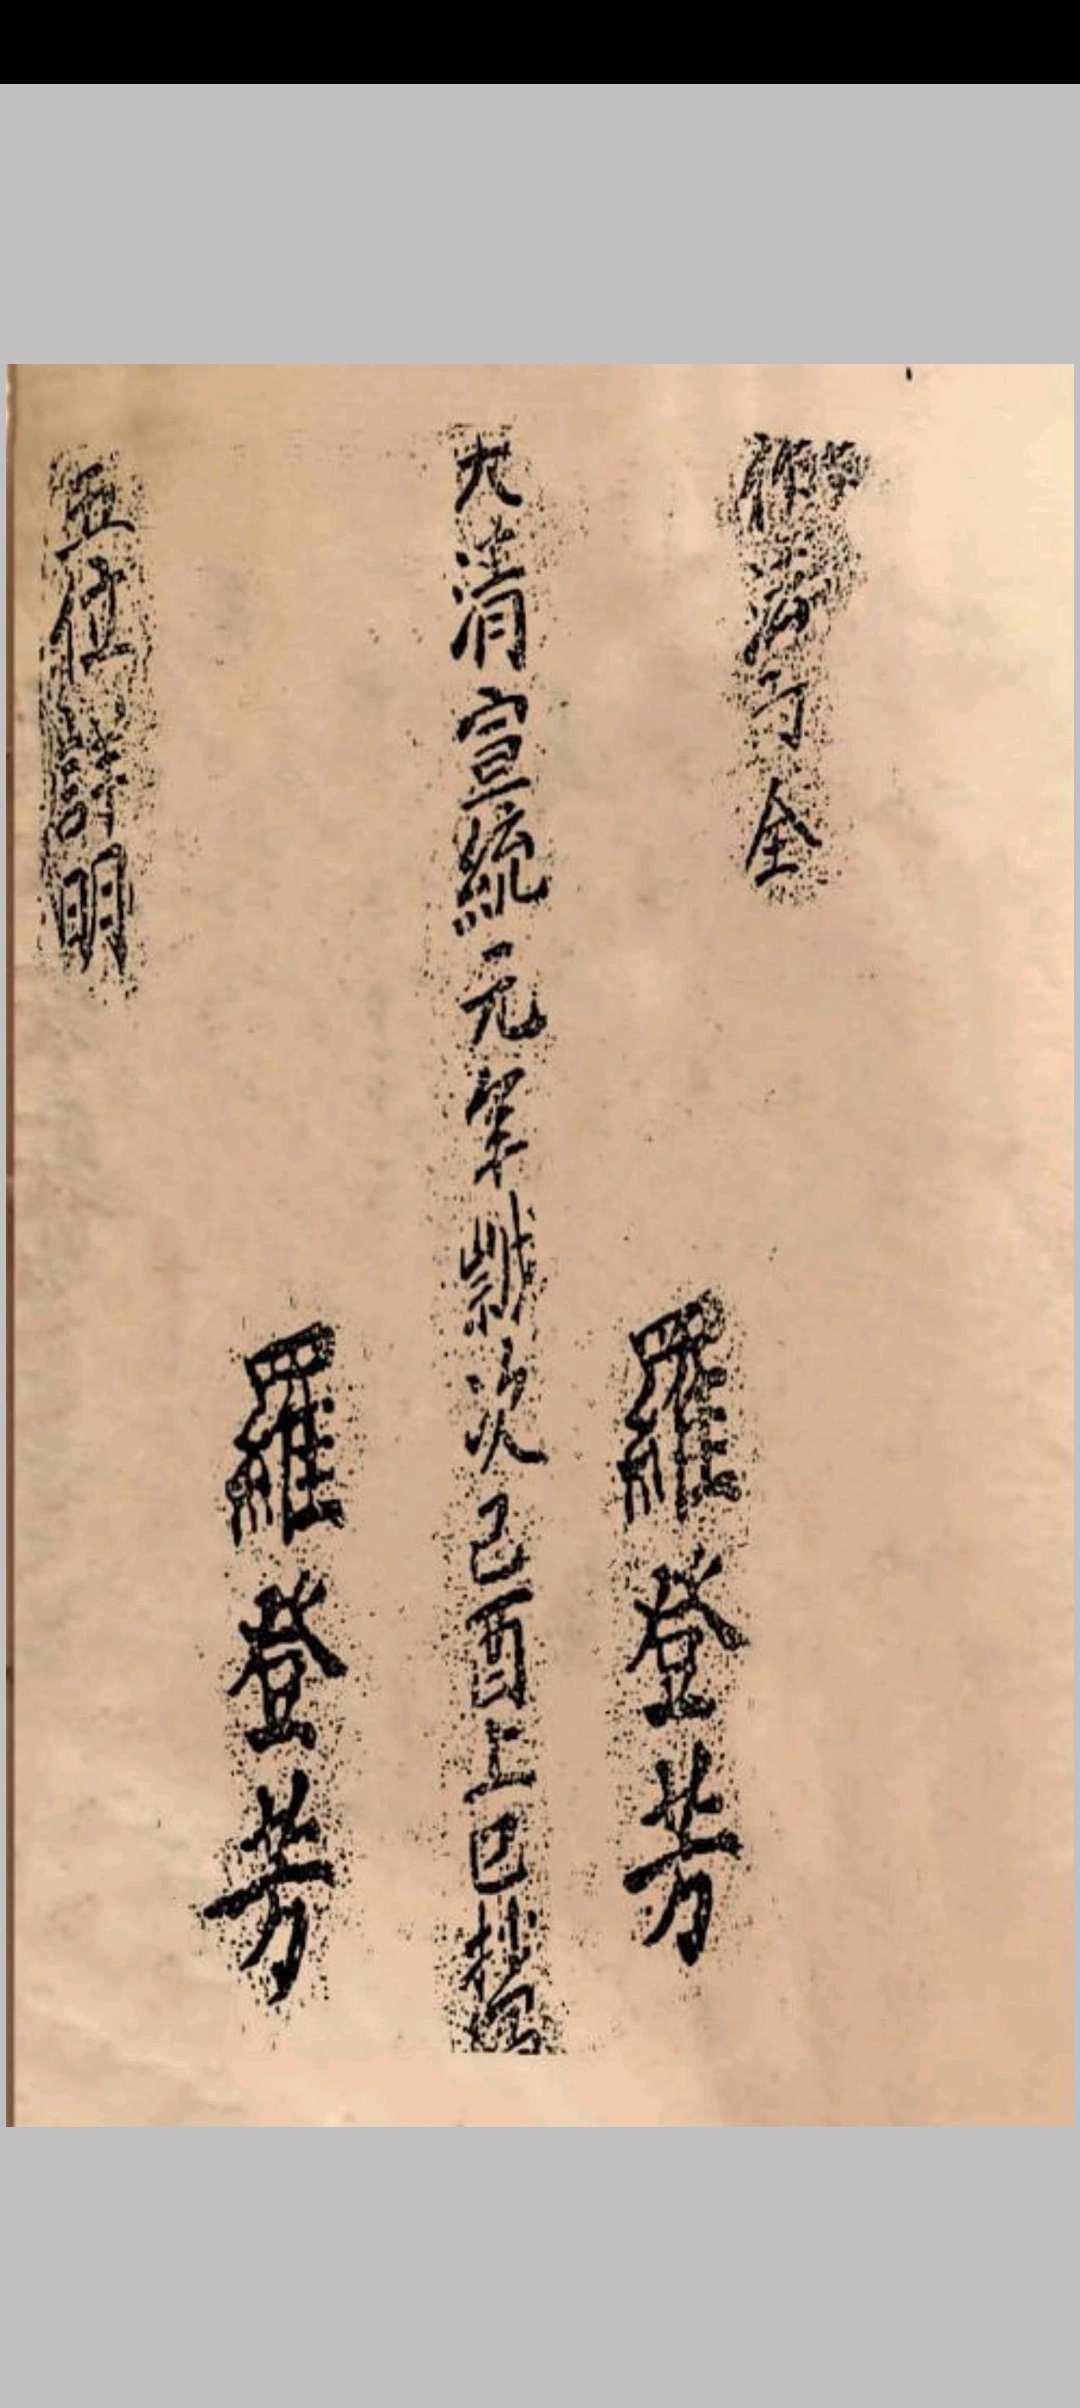 法
全
羅登芳
大清宣統元年歲次己酉上巳抄
羅登芳
五位詳明